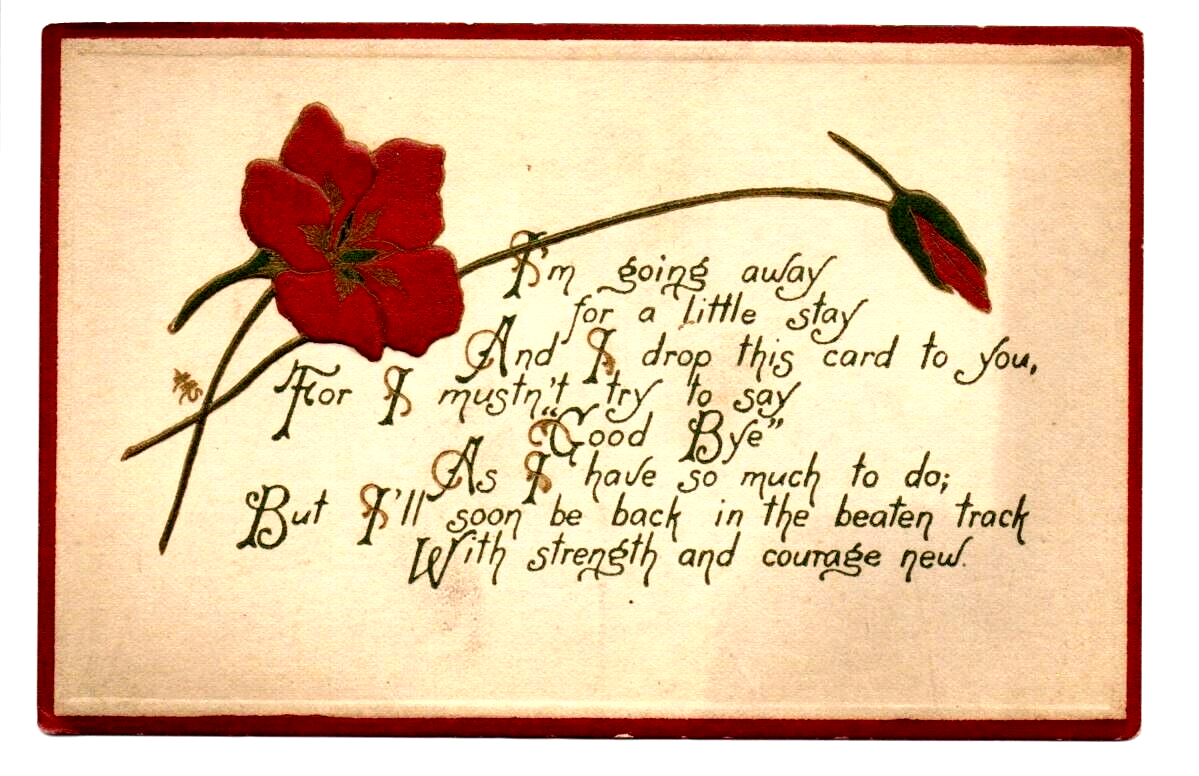 I'm going away
for a little stay
And I drop this card to you,
For I mustn't try to say
"Good Bye"
As I have so much to do;
But I'll soon be back in the beaten track
With strength and courage new.